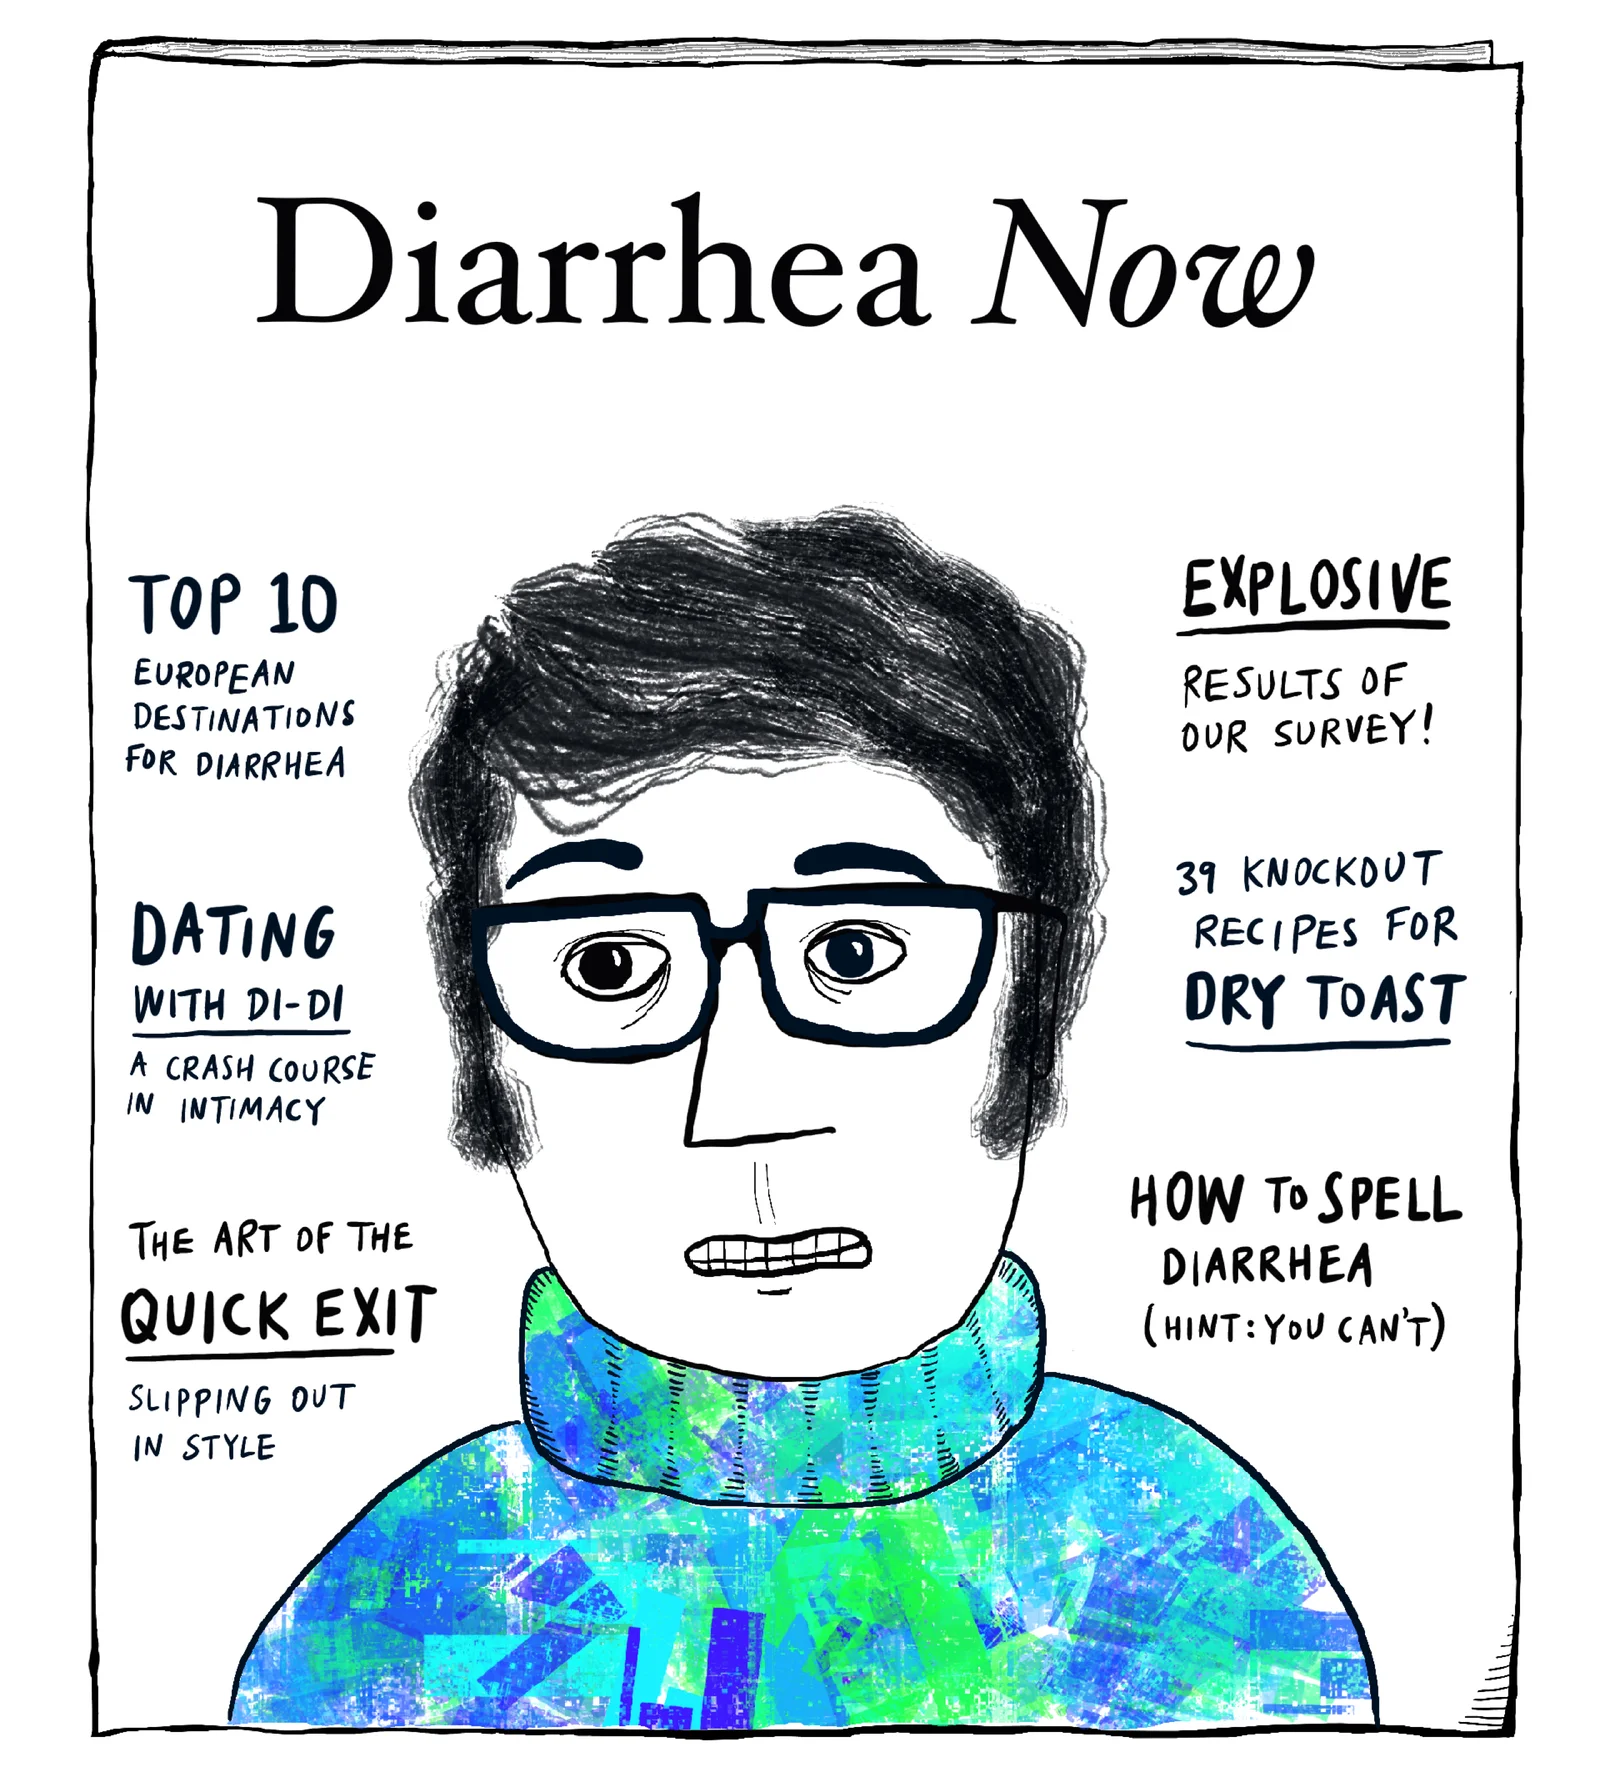 Diarrhea Now
TOP 10
EUROPEAN
DESTINATIONS
FOR DIARRHEA
DATING
WITH DI-DI
A CRASH COURSE
IN INTIMACY
THE ART OF THE
QUICK EXIT
SLIPPING OUT
IN STYLE
EXPLOSIVE
RESULTS OF
OUR SURVEY!
39 KNOCKOUT
RECIPES FOR
DRY TOAST
HOW TO SPELL
DIARRHEA
(HINT: YOU CAN'T)